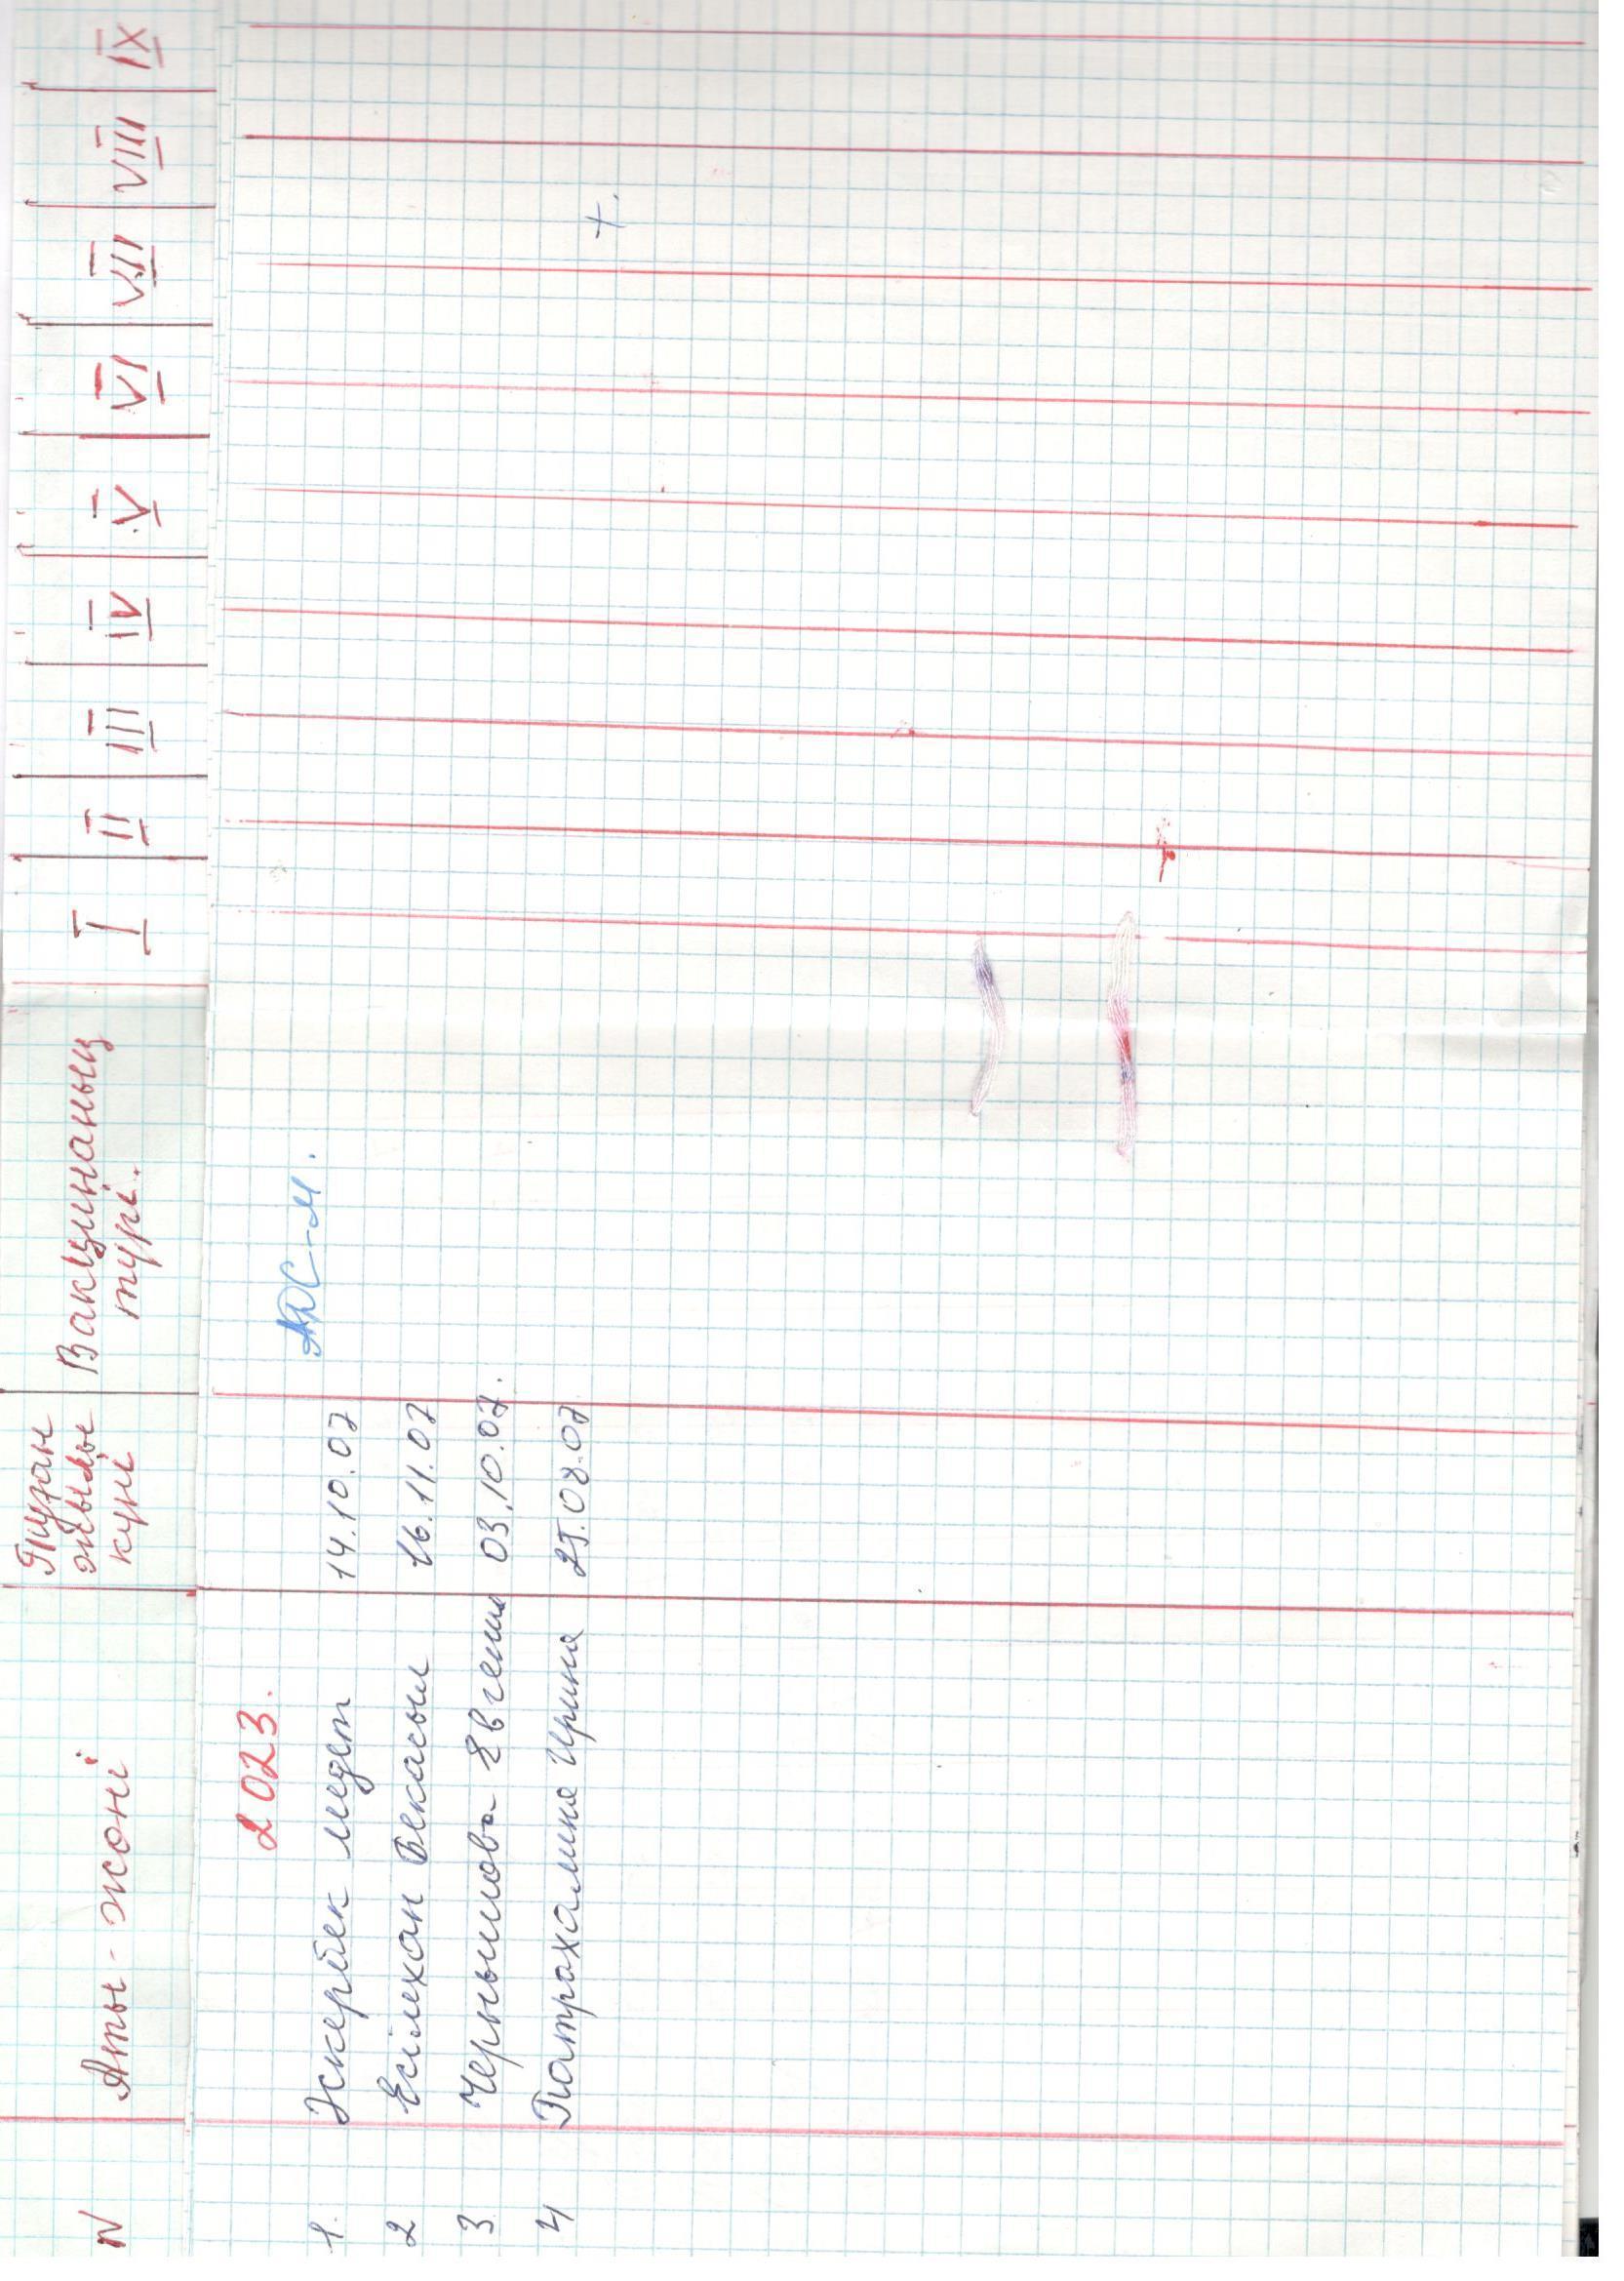 N Аты-жөні Туған жылы күні Вакцинаның түрі. I II III IV V VI VII VIII IX
2023.
1. Әскербек Медет 14.10.07 АДС-М.
2 Есімхан Бекасыл 16.11.07
3 Чернышова Евгения 03.10.07.
4 Патрохалина Ирина 25.08.07 +.